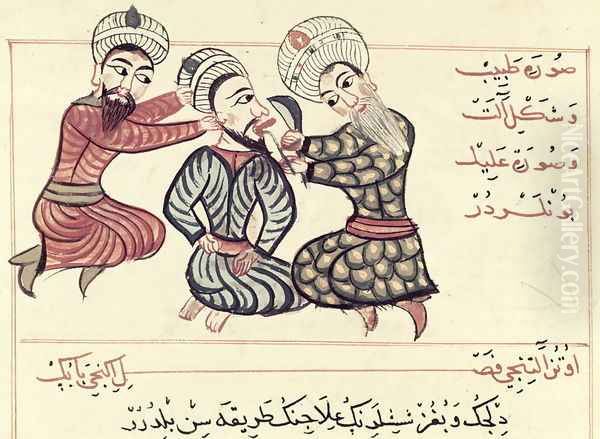 صورة طبيب
وشكل آلت
وصورة عليل
بونلردر
اوتز التنجي فصل ايكنجي بابك
دلجك وبغز ششلرنك علاجنك طريقه سن بلدرر
NiceArtGallery.com